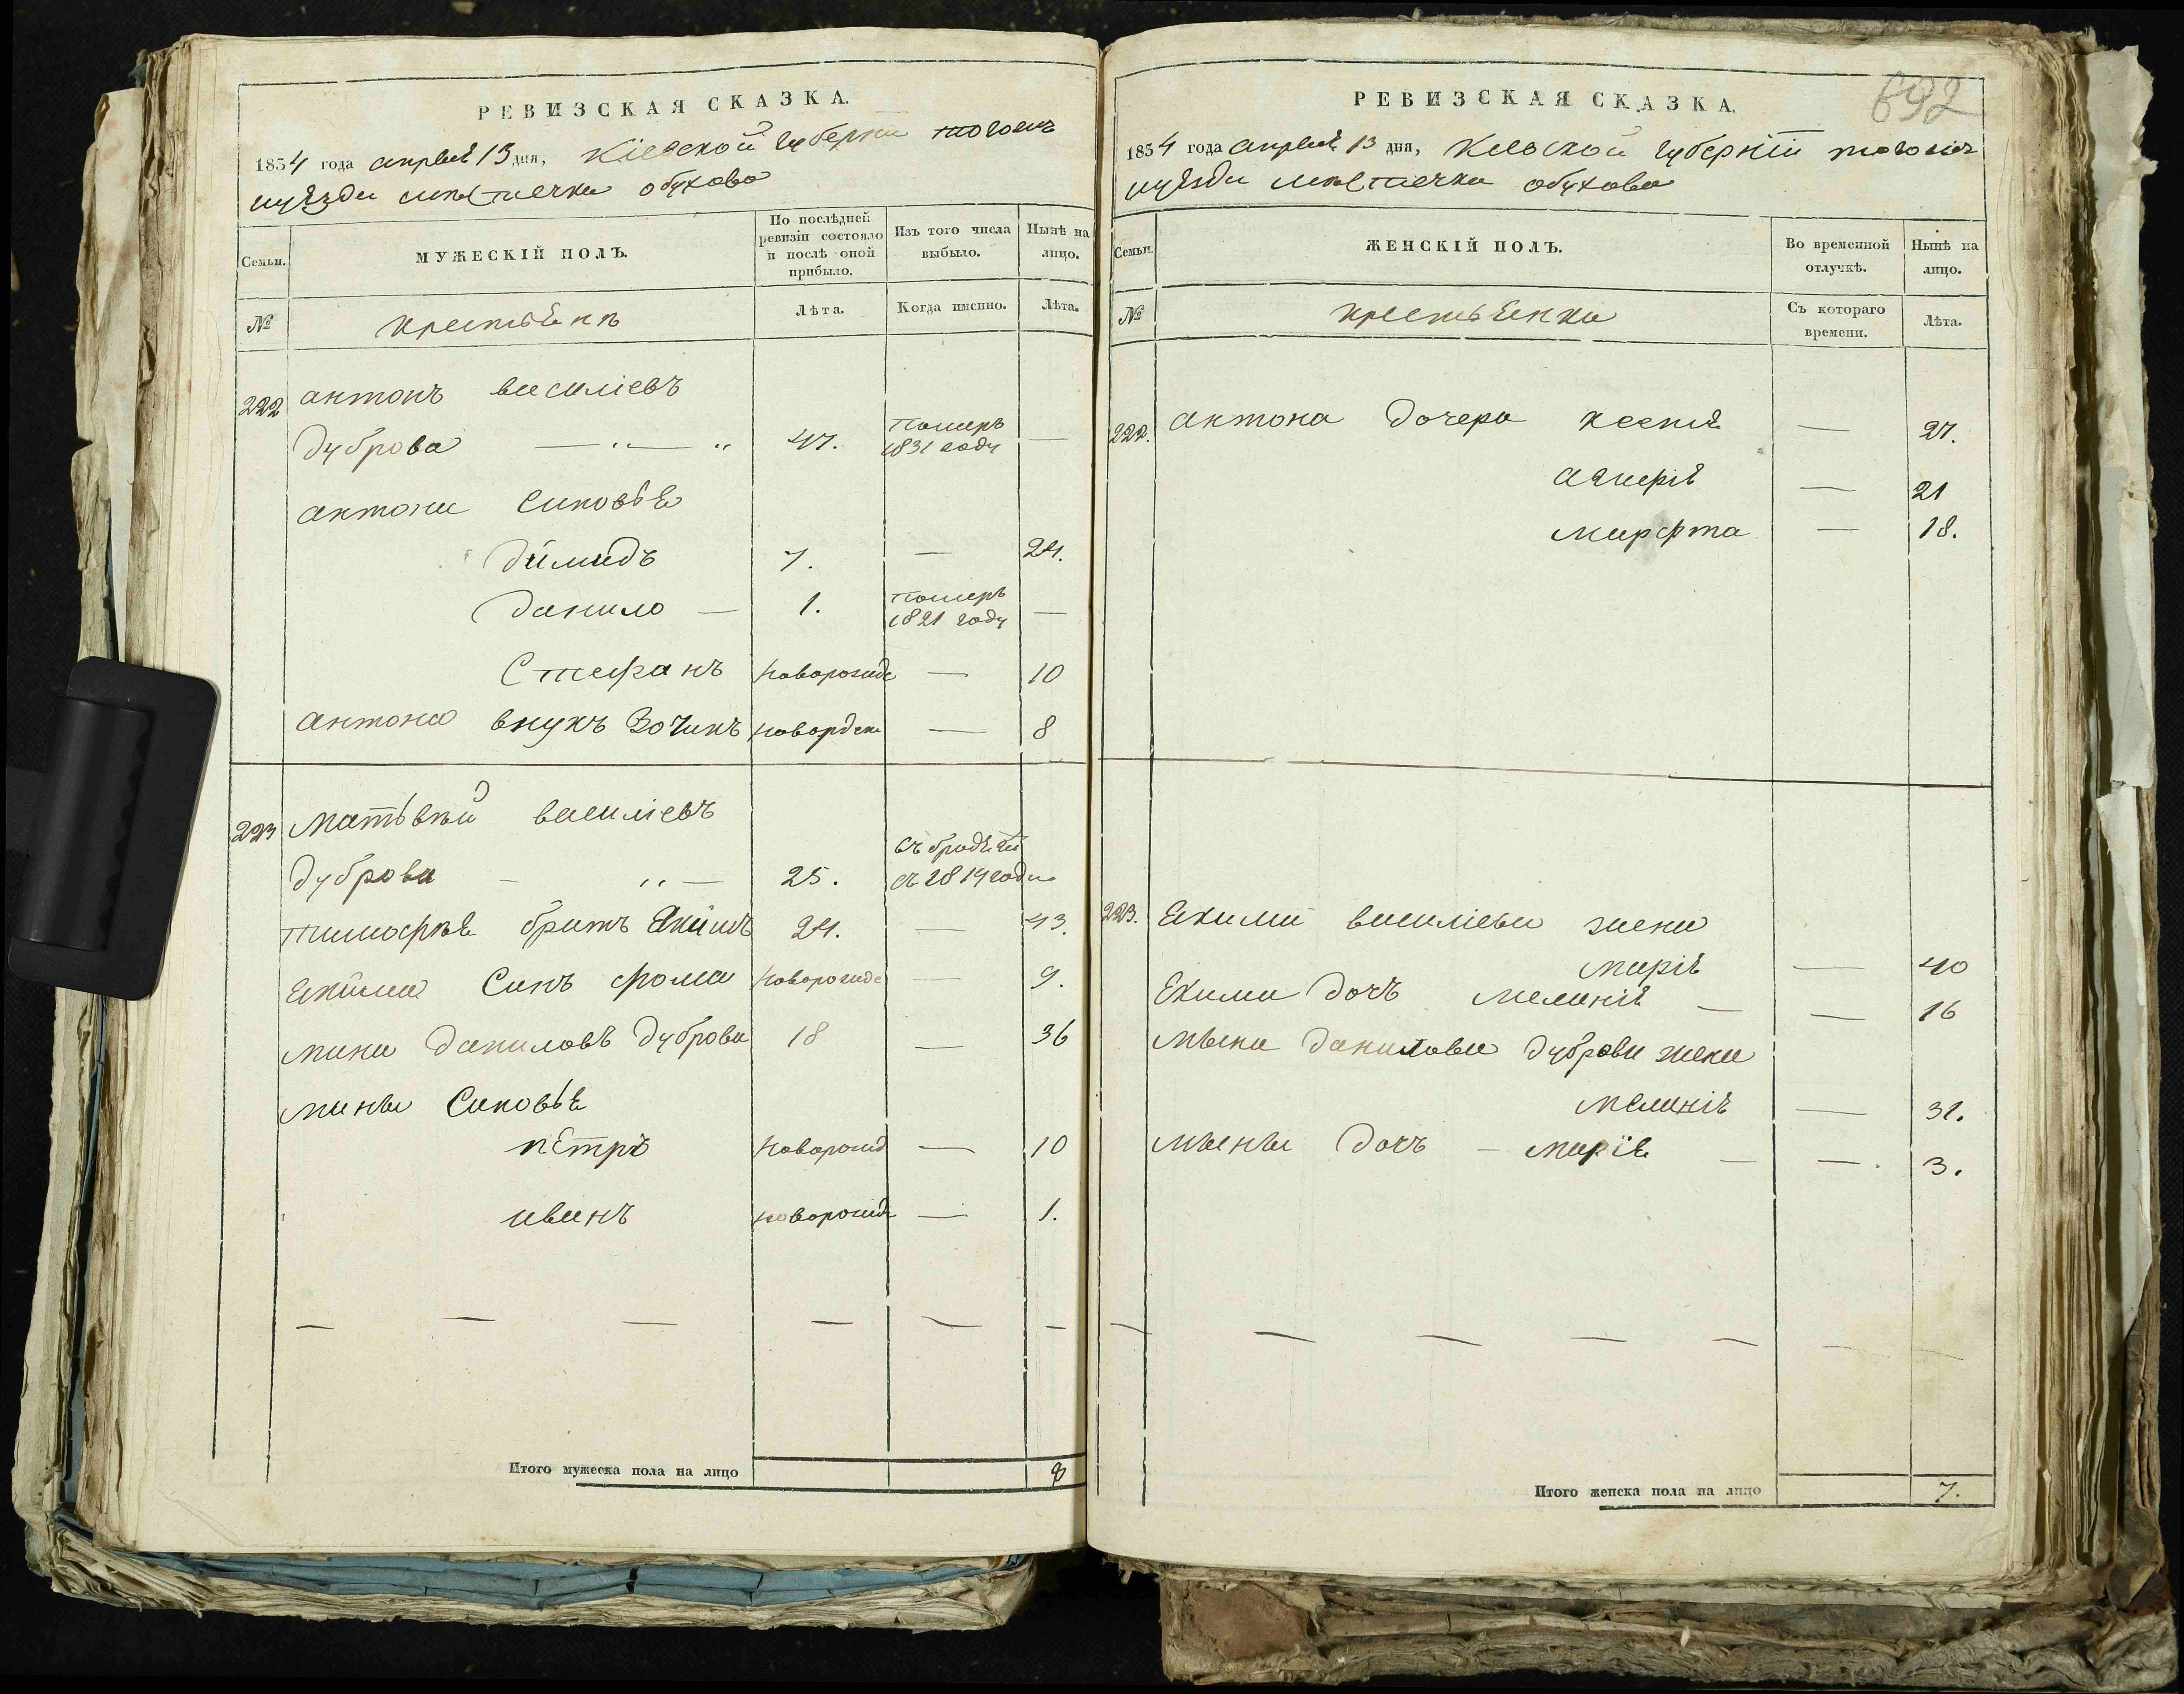 РЕВИЗСКАЯ СКАЗКА.
1834 года апреля 13 дня, Кіевской губерніи тогожъ
уезда местечка обухова
Семьи.
МУЖЕСКІЙ ПОЛЪ.
По послѣдней ревизіи состояло и послѣ оной прибыло.
Изъ того числа выбыло.
Нынѣ на лицо.
№
крестьяне
Лѣта.
Когда именно.
Лѣта.
222 антонъ василіевъ
дуброва — „ — „ 47. померъ 1831 году —
антона синовья
димидъ 7. — 24.
данило — 1. померъ 1821 году —
Стефанъ новорожд — 10
антона внукъ новорден — 8
223 матьвѣй василіевъ
дуброва — „ — 25. въ бродягах съ 1814 года
тимофея братъ Якимъ 24. — 43.
якима синъ фома новорожде — 9.
мина даниловъ дуброва 18 — 36
мины синовья
петръ новорожд — 10
иванъ новорожд — 1.
Итого мужеска пола на лицо 8
РЕВИЗСКАЯ СКАЗКА.
692
1834 года апреля 13 дня, Киевской губерніи тогожъ
уезда местечка обухова
Семьи.
ЖЕНСКІЙ ПОЛЪ.
Во временной отлучкѣ.
Нынѣ на лицо.
№
крестьянки
Съ котораго времени.
Лѣта.
222. антона дочера ксенія — 27.
— 21
марфта — 18.
223. Якима василіева жена
марія — 40
Якима дочъ меланія — — 16
мыны данилова дубровы жена
меланія — 31.
мыны дочъ — марія — — 3.
Итого женска пола на лицо 7.